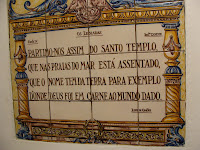 OS LUSIADAS
PARTIMO-NOS ASSIM DO SANTO TEMPLO,
QUE NAS PRAIAS DO MAR ESTÁ ASSENTADO,
QUE O NOME TEM DA TERRA PARA EXEMPLO
DONDE DEUS FOI EM CARNE AO MUNDO DADO.